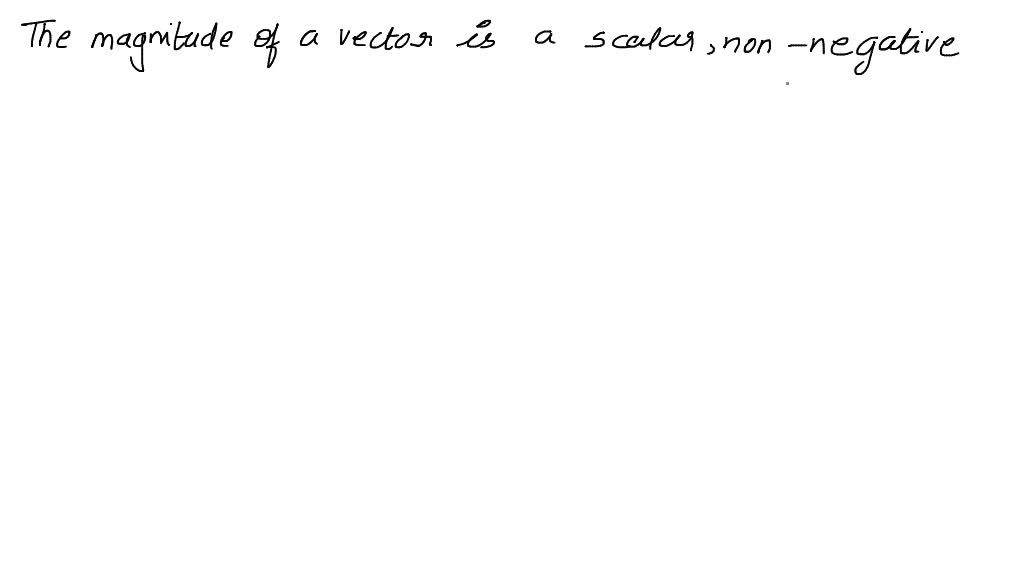 The magnitude of a vector is a scalar, non-negative